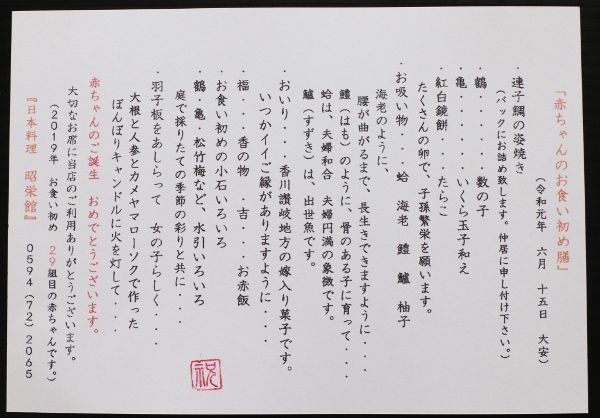 「赤ちゃんのお食い初め膳」
（令和元年 六月 十五日 大安）
・連子鯛の姿焼き
（パックにお詰め致します。仲居に申し付け下さい。）
・鶴・・・・・数の子
・亀・・・・・いくら玉子和え
・紅白鏡餅・・・・たらこ
たくさんの卵で、子孫繁栄を願います。
・お吸い物・・・蛤 海老 鱧 鱸 柚子
海老のように、
腰が曲がるまで、長生きできますように・・・
鱧（はも）のように、骨のある子に育って・・・
蛤は、夫婦和合 夫婦円満の象徴です。
鱸（すずき）は、出世魚です。
・おいり・・・香川讃岐地方の嫁入り菓子です。
いつかイイご縁がありますように・・・
・福・・・香の物 ・吉・・・お赤飯
・お食い初めの小石いろいろ
・鶴・亀・松竹梅など、水引いろいろ
庭で採りたての季節の彩りと共に・・・
・羽子板をあしらって 女の子らしく・・・
大根と人参とカメヤマローソクで作った
ぼんぼりキャンドルに火を灯して・・・
赤ちゃんのご誕生 おめでとうございます。
大切なお席に当店のご利用ありがとうございます。
（2019年 お食い初め 29組目の赤ちゃんです。）
『日本料理 昭栄館』 0594（72）2065
祝